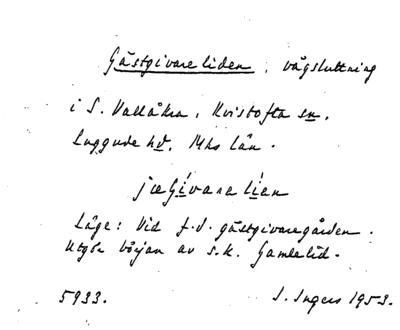 Gästgivareliden, vägsluttning
i S. Vallåkra, Kvistofta sn.
Luggude hd. Mhs län.
jæGívarelíen
Läge: Vid f.d. gästgivaregården.
Utgör början av s.k. Gamlelid.
5933. I. Ingers 1953.